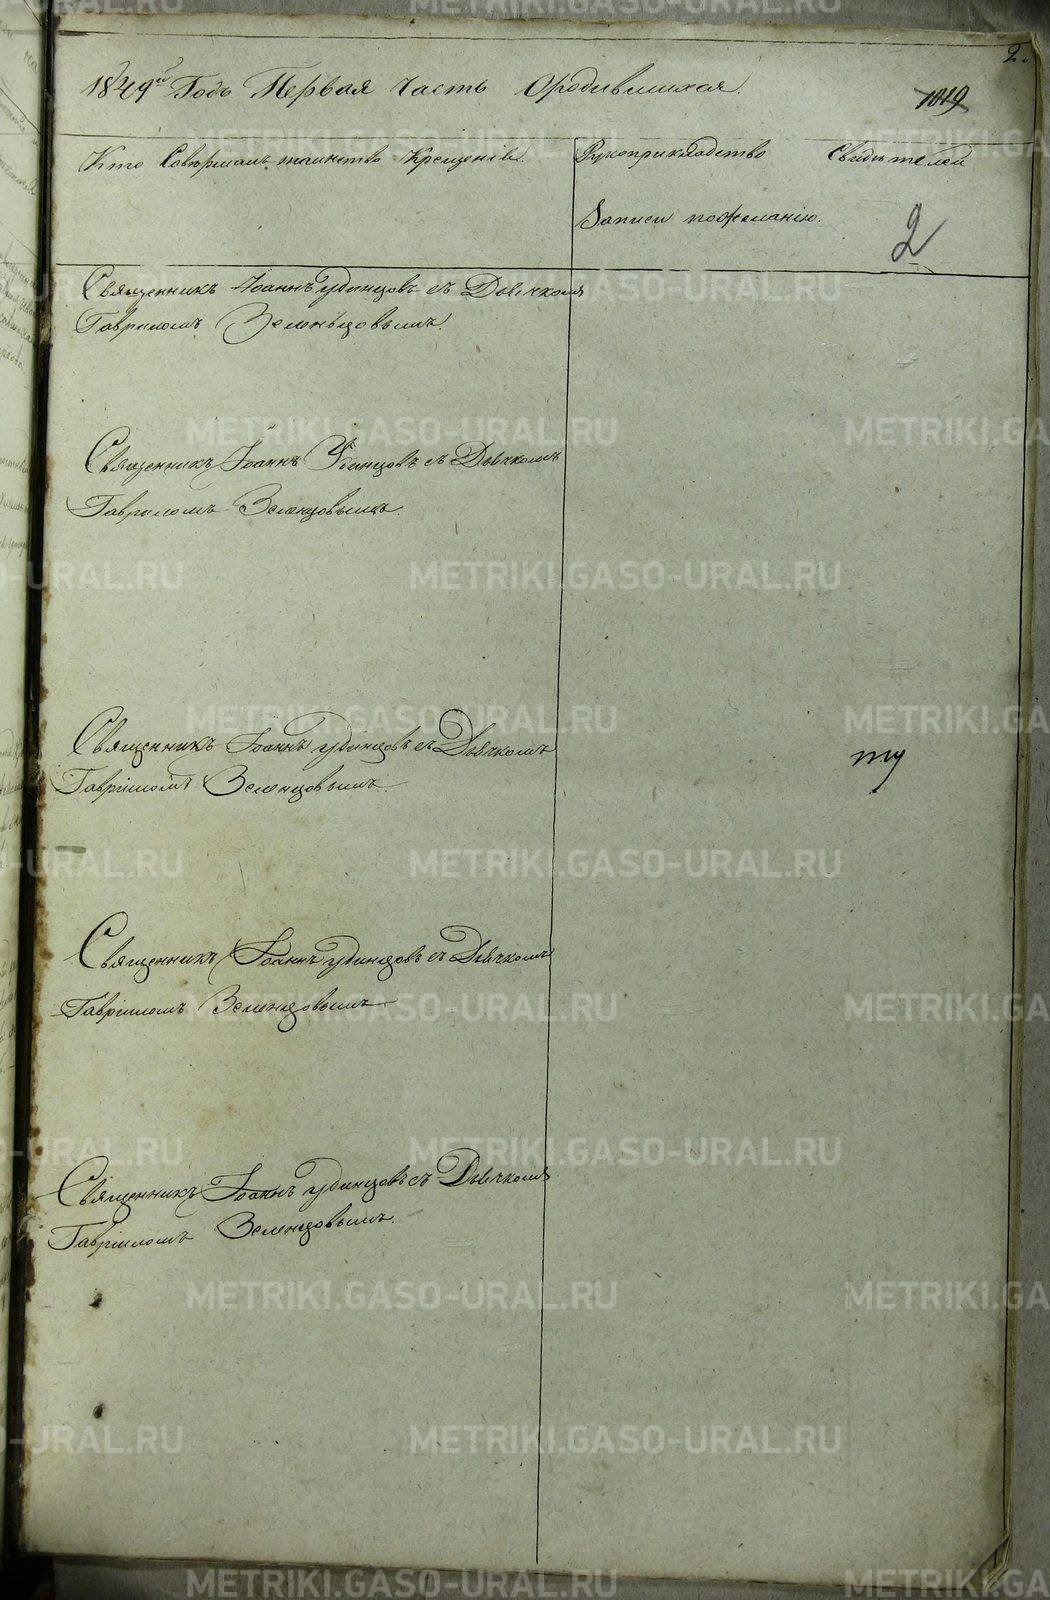 2.
1849й Годъ Первая Часть Ородившихся.
1019
Кто Совершалъ таинство Крещенія.
Рукоприкладство Свидетелей
Записи пожеланію.
2
Священникъ Іоаннъ Удинцовъ съ Дьячкомъ
Гавриломъ Зеленцовымъ.
Священникъ Іоаннъ Удинцовъ съ Дьячкомъ
Гавриломъ Зеленцовымъ.
Священникъ Іоаннъ Удинцовъ съ Дьячкомъ
Гавріиломъ Зеленцовымъ.
Священникъ Іоаннъ Удинцовъ съ Дьячкомъ
Гавріиломъ Зеленцовымъ.
Священникъ Іоаннъ Удинцовъ съ Дьячкомъ
Гавріиломъ Зеленцовымъ.
METRIKI.GASO-URAL.RU